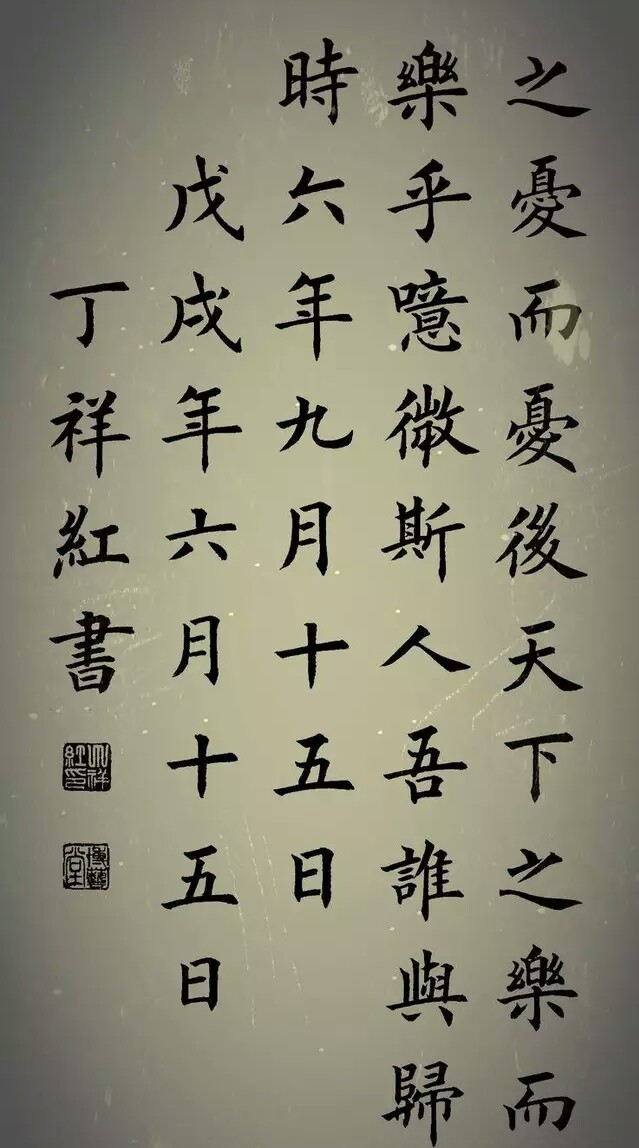 之憂而憂後天下之樂而
樂乎噫微斯人吾誰與歸
時六年九月十五日
戊戌年六月十五日
丁祥紅書
丁祥紅印
博藝堂